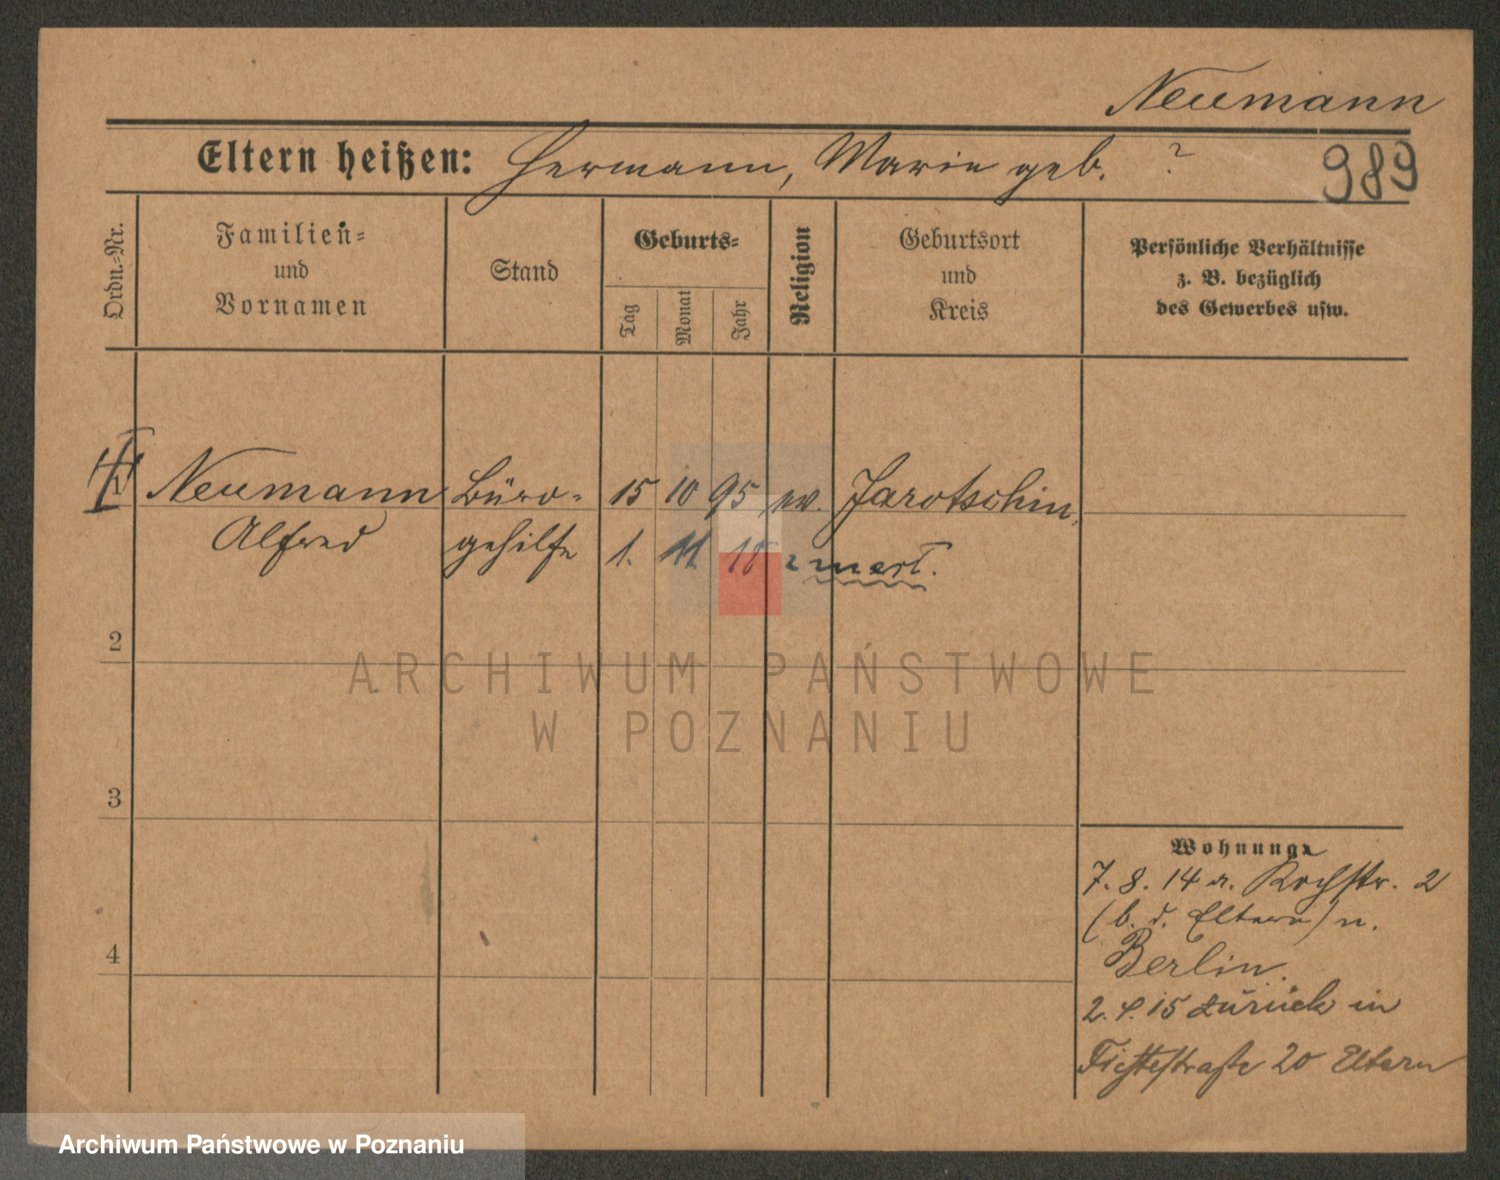 Neumann
Eltern heißen: Hermann, Marie geb. ?
989
Ordn.-Nr.
Familien-
und
Vornamen
Stand
Geburts-
Tag
Monat
Jahr
Religion
Geburtsort
und
Kreis
Persönliche Verhältnisse
z. B. bezüglich
des Gewerbes usw.
1 Neumann Büro- 15 10 95 ev. Jarotschin,
Alfred gehilfe 1. 11. 18
2
ARCHIWUM PAŃSTWOWE
W POZNANIU
3
Wohnung:
7. 8. 14 a. Kochstr. 2
(b. d. Eltern) n.
4
Berlin.
2. 4. 15 zurück in
Fichtestraße 20 Eltern
Archiwum Państwowe w Poznaniu